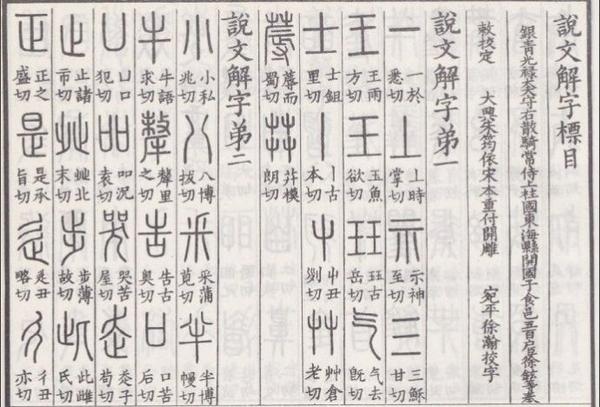 說文解字標目
銀青光祿大夫守右散騎常侍上柱國東海縣開國子食邑五百戶臣徐鉉等奉
敕校定 大興朱筠依宋本重付開雕 宛平徐瀚校字
說文解字弟一
一 一於悉切 丄 丄時掌切 示 示神至切 三 三穌甘切
王 王雨方切 玉 玉魚欲切 玨 玨古岳切 气 气去旣切
士 士鉏里切 丨 丨古本切 屮 屮丑列切 艸 艸倉老切
蓐 蓐而蜀切 茻 茻模朗切
說文解字弟二
小 小私兆切 八 八博拔切 釆 釆蒲莧切 半 半博幔切
牛 牛語求切 犛 犛里之切 告 告古奧切 口 口苦后切
凵 凵口犯切 吅 吅況袁切 哭 哭苦屋切 走 走子苟切
止 止諸市切 癶 癶北末切 步 步薄故切 此 此雌氏切
正 正之盛切 是 是承旨切 辵 辵丑略切 彳 彳丑亦切